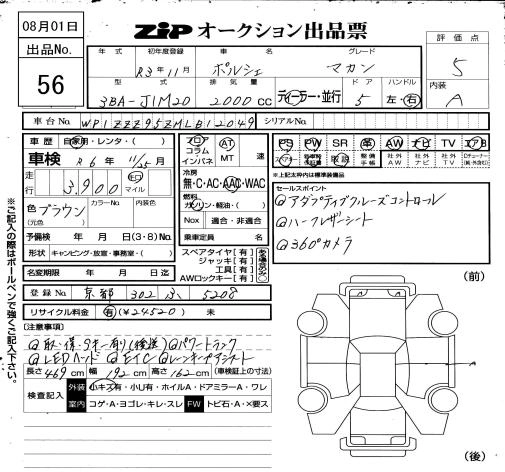 08月01日
出品No.
56
ZIP オークション出品票
評価点
5
内装
A
年式 初年度登録 車名 グレード
R3年11月 ポルシェ マカン
型式 排気量 ドア ハンドル
3BA-J1M20 2000cc ディーラー・並行 5 左・右
車台No. WP1ZZZ95ZMLB12049 シリアルNo.
車歴 自家用・レンタ・( )
車検 R6年 11/25月
走行 3,900 キロ マイル
色(元色) ブラウン カラーNo. 内装色
予備検 年 月 日(3・8)No.
形状 キャンピング・放室・事務室・( )
名変期限 年 月 日迄
フロア コラム インパネ AT MT 速
冷房
無・C・AC・AAC・WAC
燃料
ガソリン・軽油・( )
Nox 適合・非適合
乗車定員 名
スペアタイヤ[有]
ジャッキ[有]
工具[有]
AWロックキー[有]
PS PW SR 革 AW ナビ TV エアB
スペアキー 取説 整備手帳 社外AW 社外ナビ 社外TV
※上記太枠内は標準装備品
セールスポイント
@アダプティブクルーズコントロール
@ハーフレザーシート
@360°カメラ
登録No. 京都 302 ふ 5208
リサイクル料金 有(¥24520) 未
[注意事項]
@取・保・Sキー有り(検送) @パワートランク
@LEDヘッド @ETC @レーンキープアシスト
長さ469cm 幅192cm 高さ162cm (車検証上の寸法)
検査記入 外装 小キズ有・小U有・ホイルA・ドアミラーA・ワレ
室内 コゲ・A・ヨゴレ・キレ・スレ FW トビ石・A・×要ス
(前)
(後)
※ご記入の際はボールペンで強くご記入下さい。